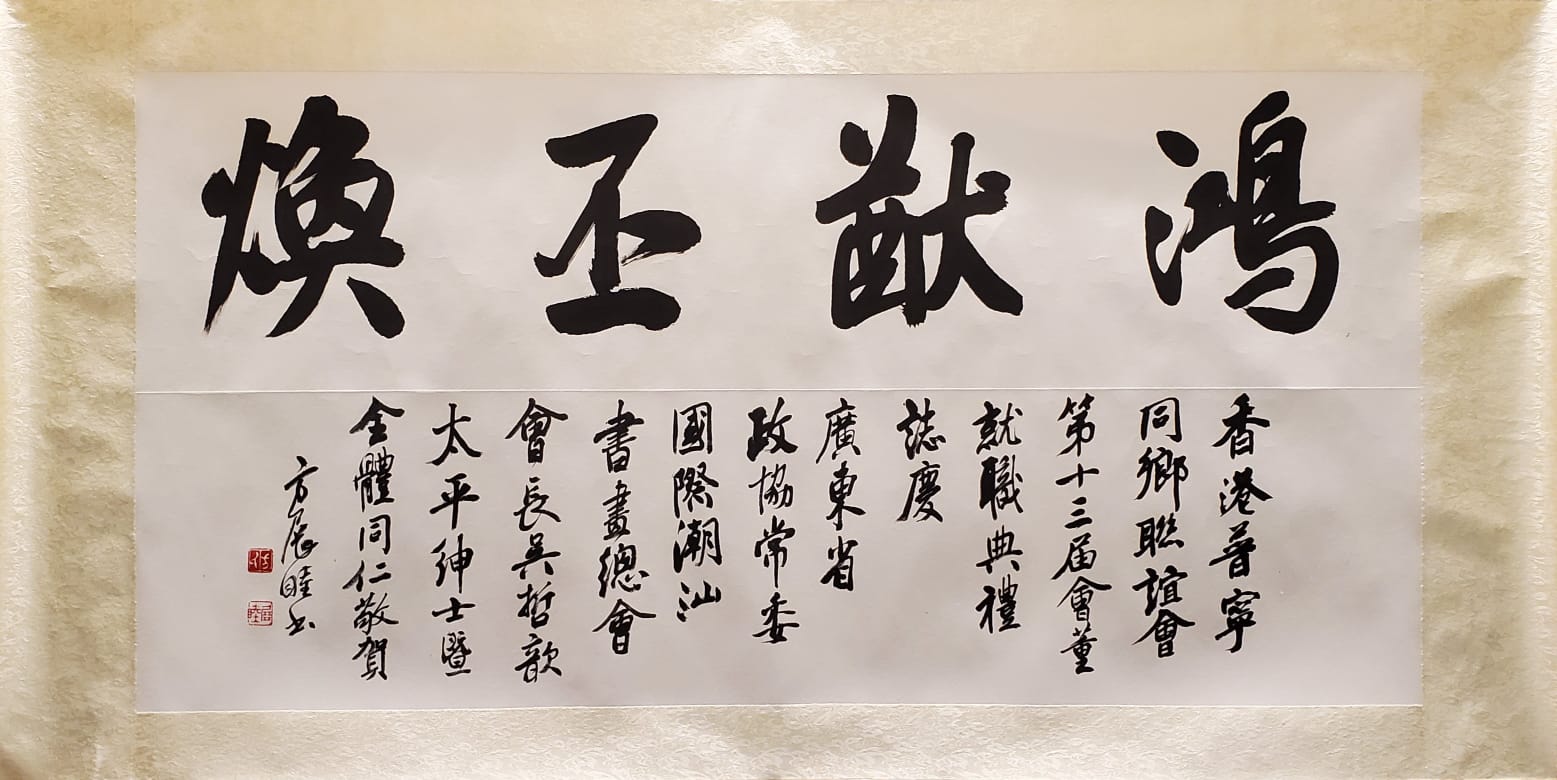 鴻猷丕煥
香港普寧
同鄉聯誼會
第十三届會董
就職典禮
誌慶
廣東省
政協常委
國際潮汕
書畫總會
會長吳哲歆
太平紳士暨
全體同仁敬賀
方展睦书